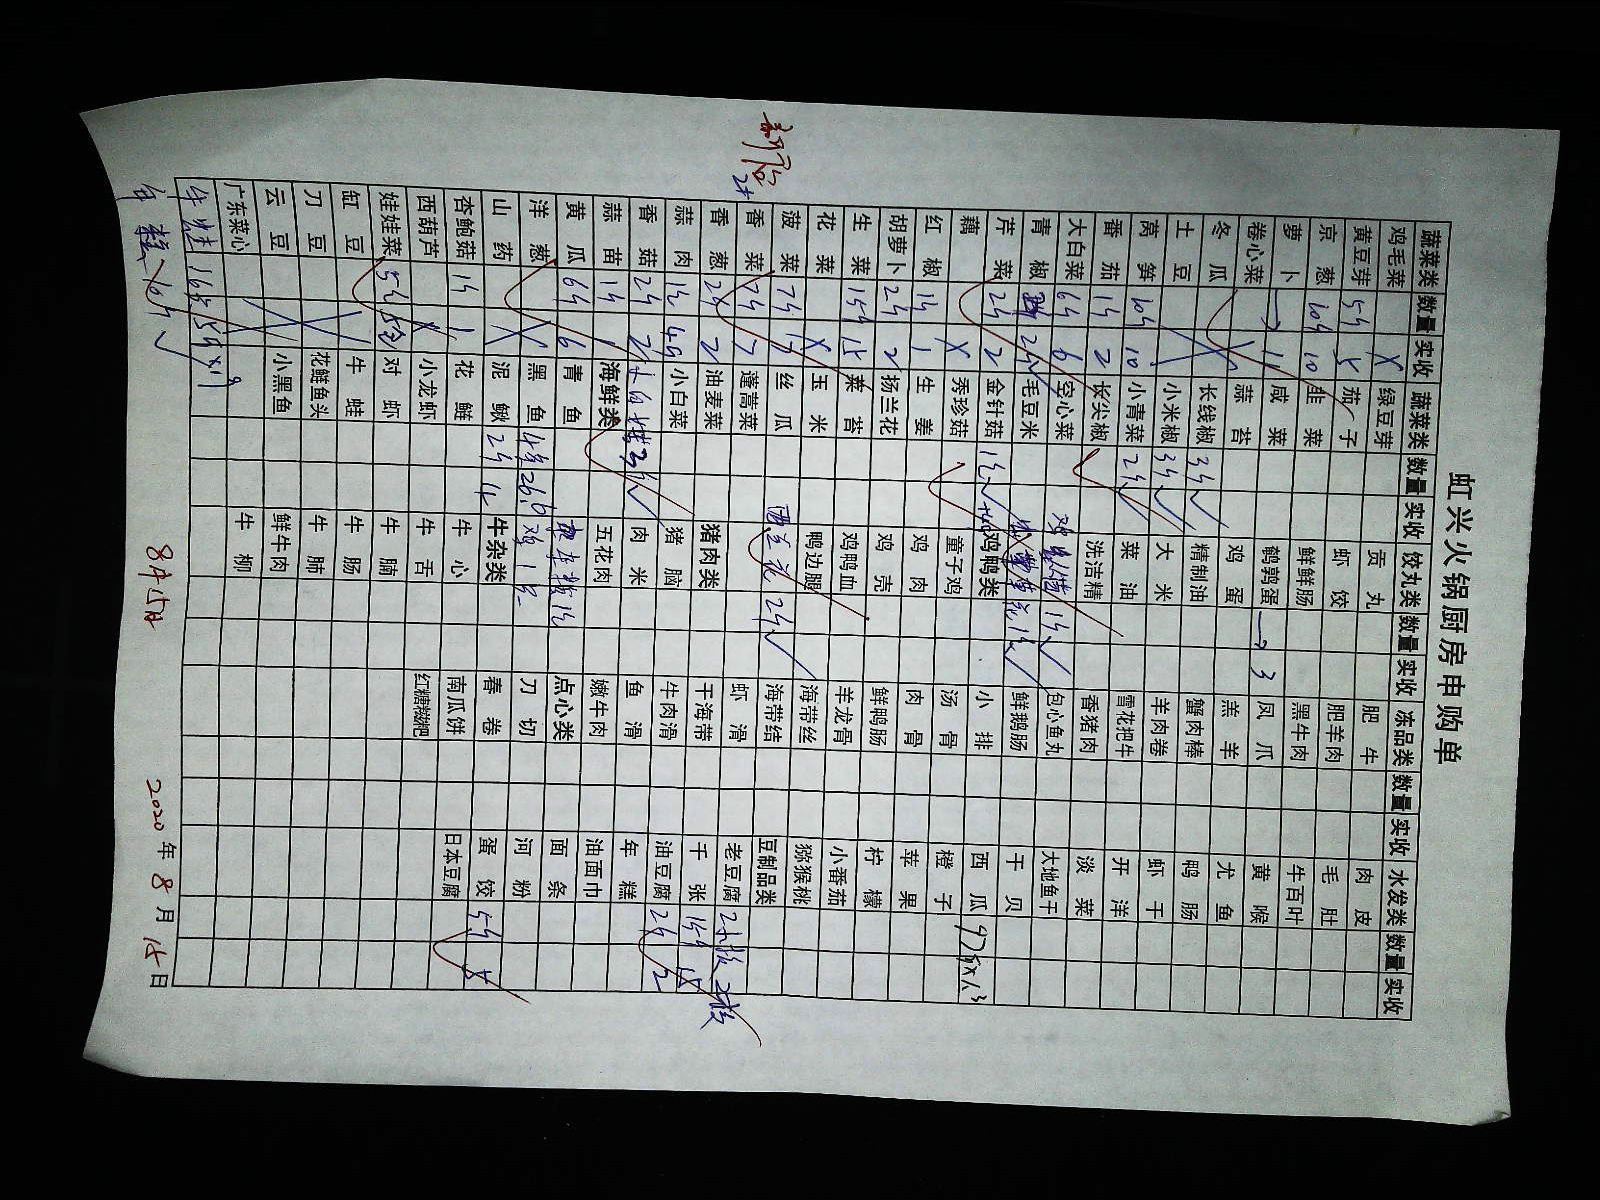 虹兴火锅厨房申购单
蔬菜类 数量 实收 蔬菜类 数量 实收 饺丸类 数量 实收 冻品类 数量 实收 水发类 数量 实收
鸡毛菜 X 绿豆芽 贡丸 肥牛 肉皮
黄豆芽 5斤 5 茄子 虾饺 肥羊肉 毛肚
京葱 10斤 10 韭菜 鲜鲜肠 黑牛肉 牛百叶
萝卜 咸菜 鹌鹑蛋 → 3 凤爪 黄喉
卷心菜 → 蒜苔 鸡蛋 羔羊 尤鱼
冬瓜 X 长线椒 3斤 ✓ 精制油 蟹肉棒 鸭肠
土豆 小米椒 3斤 ✓ 大米 羊肉卷 虾干
莴笋 10斤 10 小青菜 2斤 ✓ 菜油 雪花把牛 开洋
番茄 1斤 2 长尖椒 洗洁精 香猪肉 淡菜
大白菜 6斤 6 空心菜 1斤 ✓ 包心鱼丸 大地鱼干
青椒 2斤 毛豆米 ✓ 鲜鹅肠 干贝
芹菜 2斤 2 金针菇 1包 ✓ 鸡鸭类 小排 西瓜
藕 X 秀珍菇 童子鸡 汤骨 橙子
红椒 1斤 1 生姜 鸡肉 肉骨 苹果
胡萝卜 2斤 2 扬兰花 鸡壳 鲜鸭肠 柠檬
生菜 15斤 15 菜苔 鸡鸭血 羊龙骨 小番茄
花菜 X 玉米 鸭边腿 海带丝 猕猴桃
菠菜 7斤 丝瓜 西兰花 2斤 ✓ 海带结 豆制品类
香菜 7斤 7 蓬蒿菜 虾滑 老豆腐
香葱 2斤 2 油麦菜 猪肉类 干海带 千张 15斤 15
蒜肉 小白菜 猪脑 牛肉滑 油豆腐 2斤 2
香菇 2斤 2 肉米 鱼滑 年糕
蒜苗 1斤 海鲜类 五花肉 嫩牛肉 油面巾
黄瓜 6斤 6 青鱼 点心类 面条
洋葱 X 黑鱼 26.6 刀切 河粉
山药 X 泥鳅 2斤 牛杂类 春卷 蛋饺 5斤 5
杏鲍菇 1斤 1 花鲢 牛心 南瓜饼 日本豆腐
西葫芦 X 小龙虾 牛舌 红糖糍粑
娃娃菜 5斤 对虾 牛腩
缸豆 牛蛙 牛肠
刀豆 花鲢鱼头 牛肺
云豆 小黑鱼 鲜牛肉
广东菜心 牛柳
牛蛙
8月15日 2020年8月14日
新店